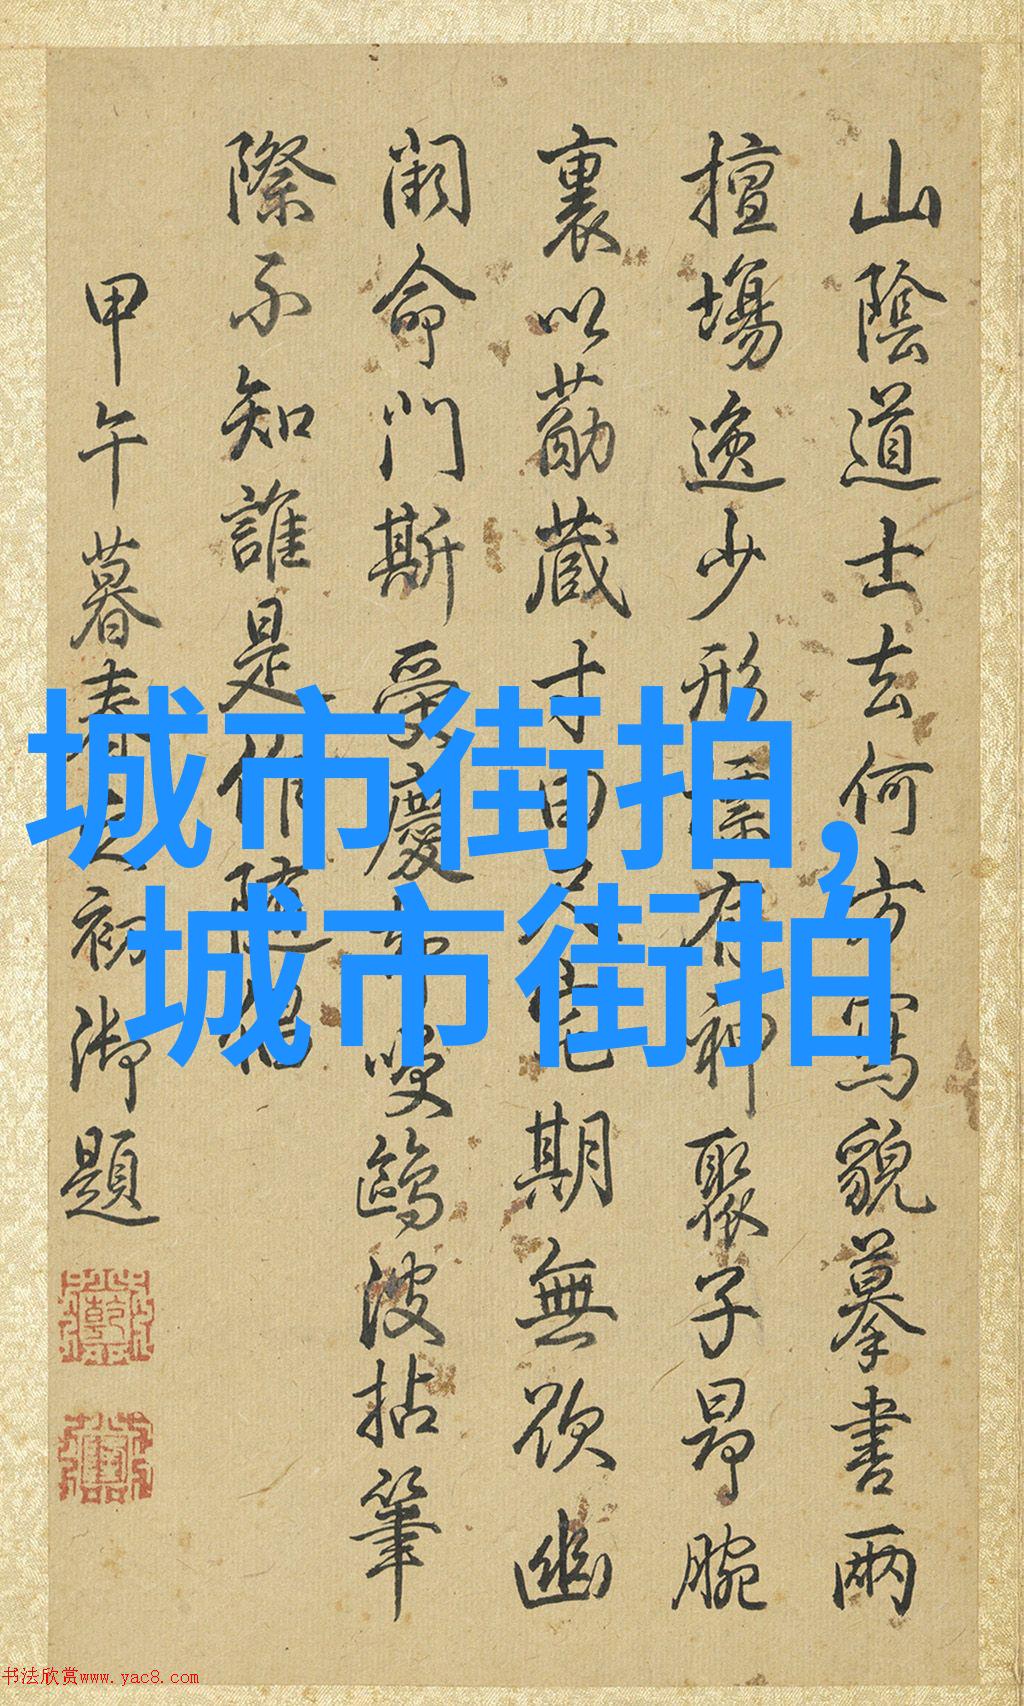 山陰道士去何方寫貌摹書兩
擅場逸少形
有神聚子昂腕
裏以勘蔵寸田
期無欲幽
闲命門斯受慶
鷗波拈筆
際不知誰是作隨
甲午暮春
初御題
城市街拍,
城市街拍
书法欣赏www.yac8.com